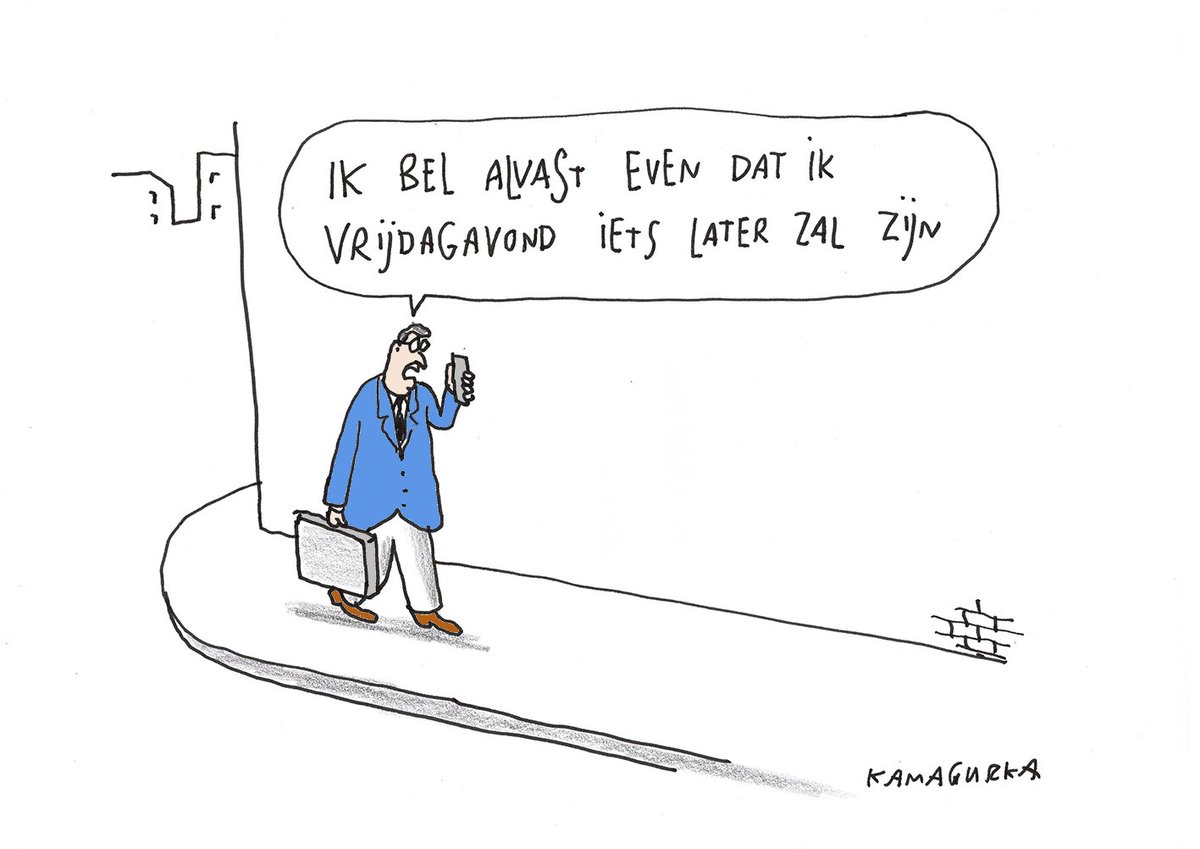 IK BEL ALVAST EVEN DAT IK
VRIJDAGAVOND IETS LATER ZAL ZIJN
KAMAGURKA